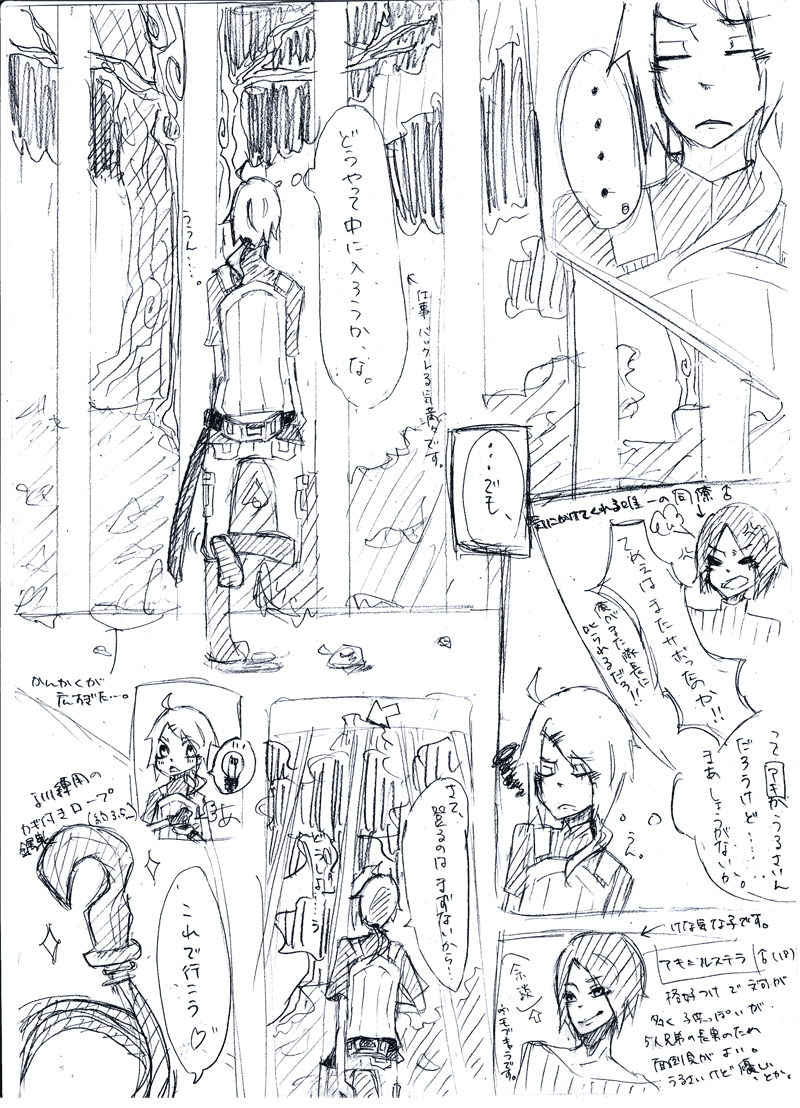 ・・・・。
どうやって中に入ろうか、な。
ううん…
仕事バックレる気満々です。
…でも、
気にかけてくれる唯一の同僚♂
てめぇはまたサボったのか!!
俺がまた隊長に
叱られるだろ!!
って アキがうるさいん
だろうけど……
まあしょうがないか。
うん。
かんかくが
広すぎた…。
あ
さて、登るのはまずないから…
どうしよ…う
訓練用の
かぎ付きロープ
これで行こう♡
けな気な子です。
余談
♂(18)
格好つけで
多く子供っぽいが、
5人兄弟の長男のため
面倒見がよい。
うるさいけど優しい
とか。
モブキャラです。